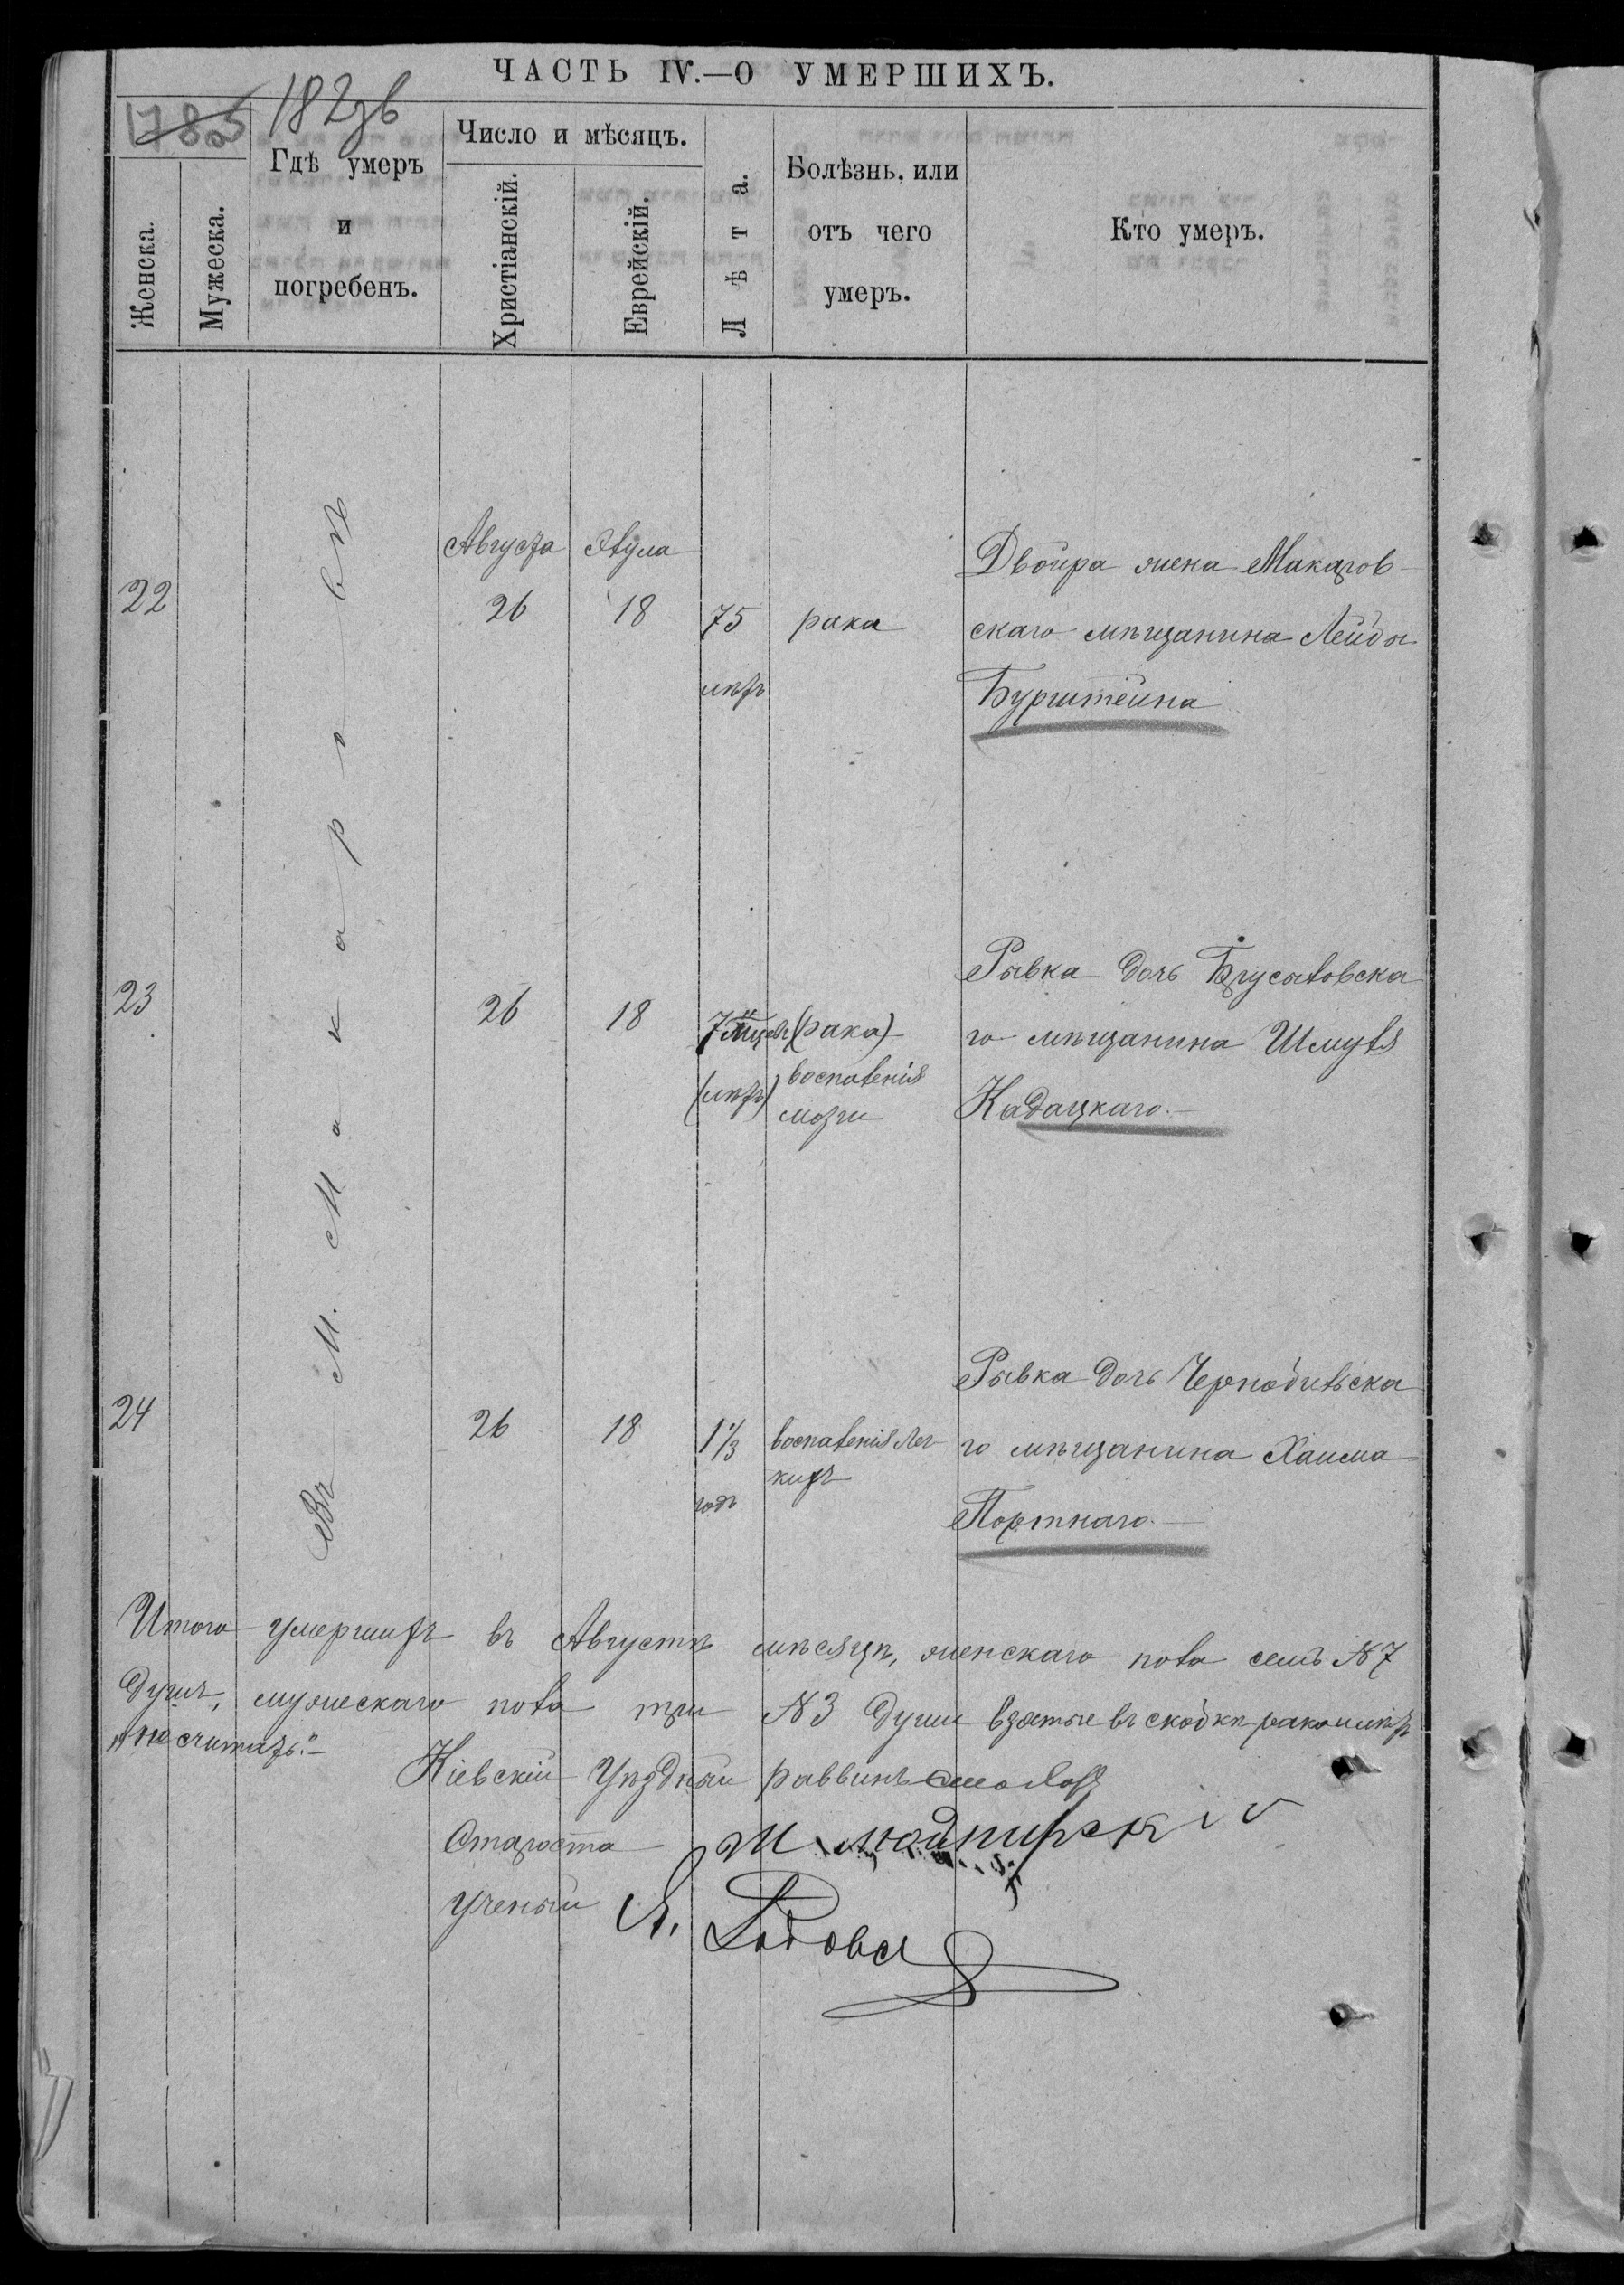 ЧАСТЬ IV.—О УМЕРШИХЪ.
1785
182зв
Женска.
Мужеска.
Гдѣ умеръ
и
погребенъ.
Число и мѣсяцъ.
Христіанскій.
Еврейскій.
Лѣта.
Болѣзнь, или
отъ чего
умеръ.
Кто умеръ.
Въ М. Макаровѣ
22
Августа
26
18
75
лѣтъ
рака
Двойра жена Макаров-
скаго мѣщанина Лейбы
Бурштейна
23
26
18
7 м-цевъ
(лѣтъ)
(рака)
воспаленія
мозги
Рывка дочь Брусиловска
го мѣщанина Шмуля
Кадацкаго.—
24
26
18
1 1/3
годъ
воспаленія лег
кихъ
Рывка дочь Чернобильска
го мѣщанина Хаима
Портнаго.—
Итого умершихъ въ Августѣ мѣсяцѣ, женскаго пола семь №7
душъ, мужескаго пола три №3 души взятые въ скобки рака и лѣтъ
„не считать."—
Кіевскій Уѣздный раввинъ
Староста
Ученый